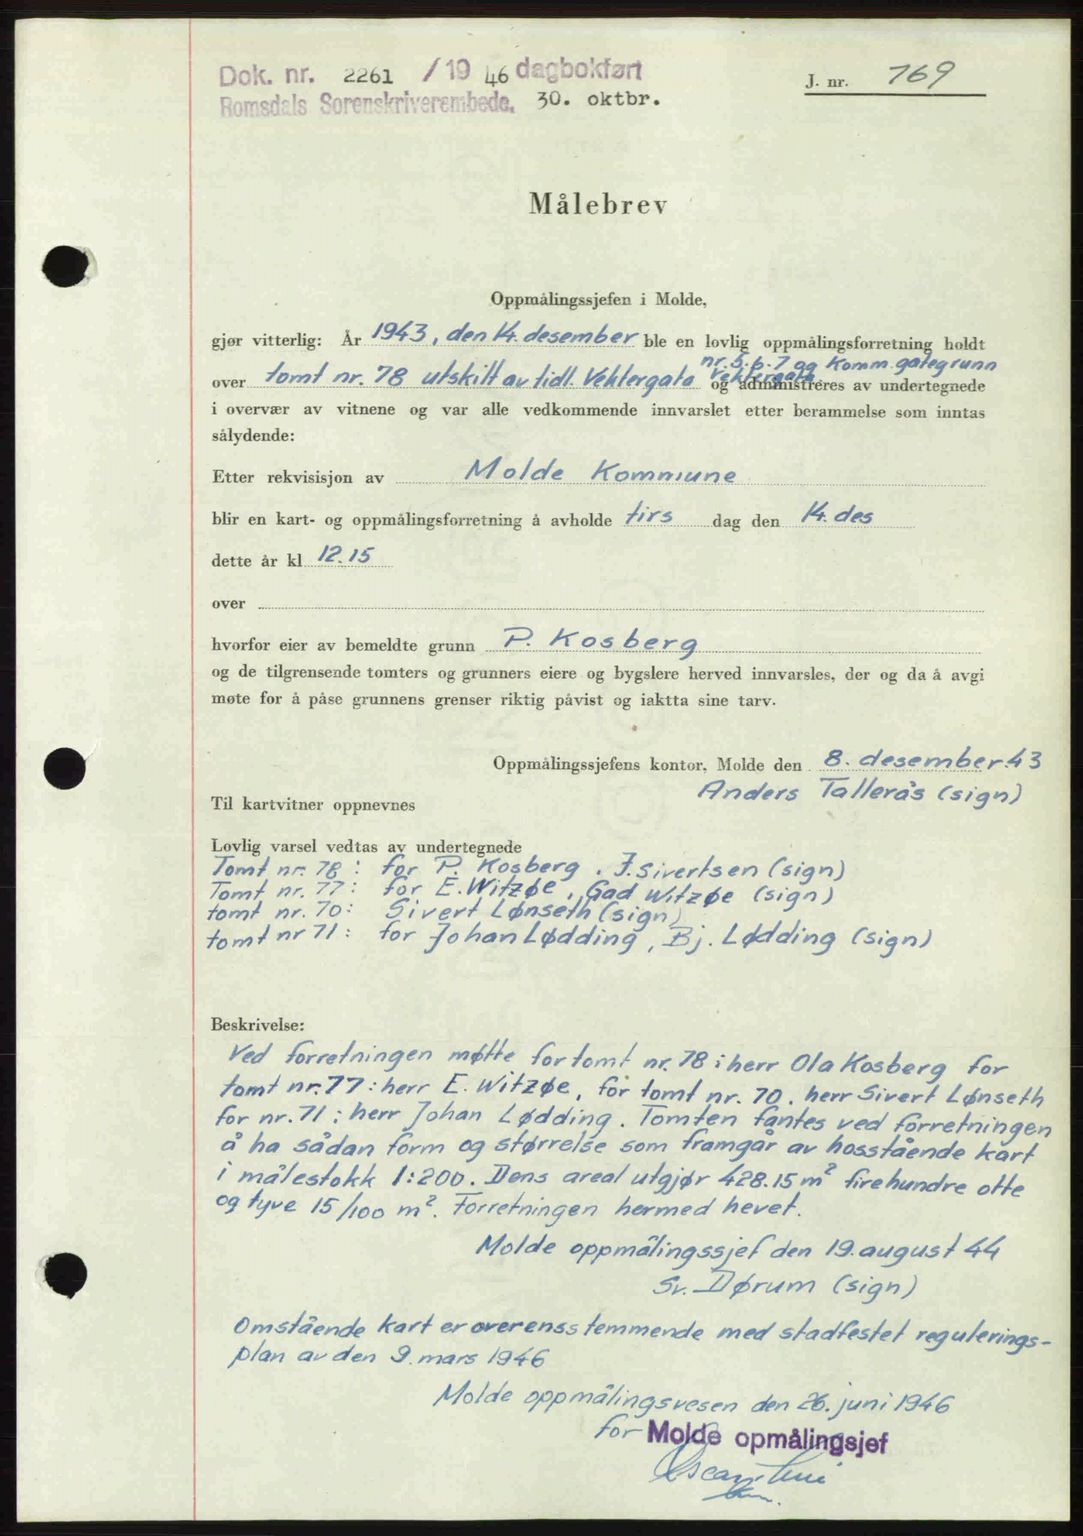 Dok. nr. 2261 / 19 46 dagbokført
Romsdals Sorenskriverembede, 30. oktbr.
J. nr. 769
Målebrev
Oppmålingssjefen i Molde,
gjør vitterlig: År 1943, den 14. desember ble en lovlig oppmålingsforretning holdt
nr. 5. 6. 7 og Komm. gategrunn
over tomt nr. 78 utskilt av tidl. Vektergata Vektergata og administreres av undertegnede
i overvær av vitnene og var alle vedkommende innvarslet etter berammelse som inntas
sålydende:
Etter rekvisisjon av Molde Kommune
blir en kart- og oppmålingsforretning å avholde tirs dag den 14. des
dette år kl 12.15
over
hvorfor eier av bemeldte grunn P. Kosberg
og de tilgrensende tomters og grunners eiere og bygslere herved innvarsles, der og da å avgi
møte for å påse grunnens grenser riktig påvist og iaktta sine tarv.
Oppmålingssjefens kontor, Molde den 8. desember 43
Anders Tallerås (sign)
Til kartvitner oppnevnes
Lovlig varsel vedtas av undertegnede
Tomt nr. 78: for P. Kosberg. J. Sivertsen (sign)
Tomt nr. 77: for E. Witzøe, Gad Witzøe (sign)
tomt nr. 70: Sivert Lønseth (sign)
tomt nr 71: for Johan Lødding, Bj. Lødding (sign)
Beskrivelse:
Ved forretningen møtte for tomt nr. 78: herr Ola Kosberg for
tomt nr. 77: herr E. Witzøe, for tomt nr. 70. herr Sivert Lønseth
for nr. 71: herr Johan Lødding. Tomten fantes ved forretningen
å ha sådan form og størrelse som framgår av hosstående kart
i målestokk 1:200. Dens areal utgjør 428.15 m² firehundre otte
og tyve 15/100 m². Forretningen hermed hevet.
Molde oppmålingssjef den 19. august 44
Sv. Dørum (sign)
Omstående kart er overensstemmende med stadfestet regulerings-
plan av den 9. mars 1946
Molde oppmålingsvesen den 26. juni 1946
for Molde opmålingsjef